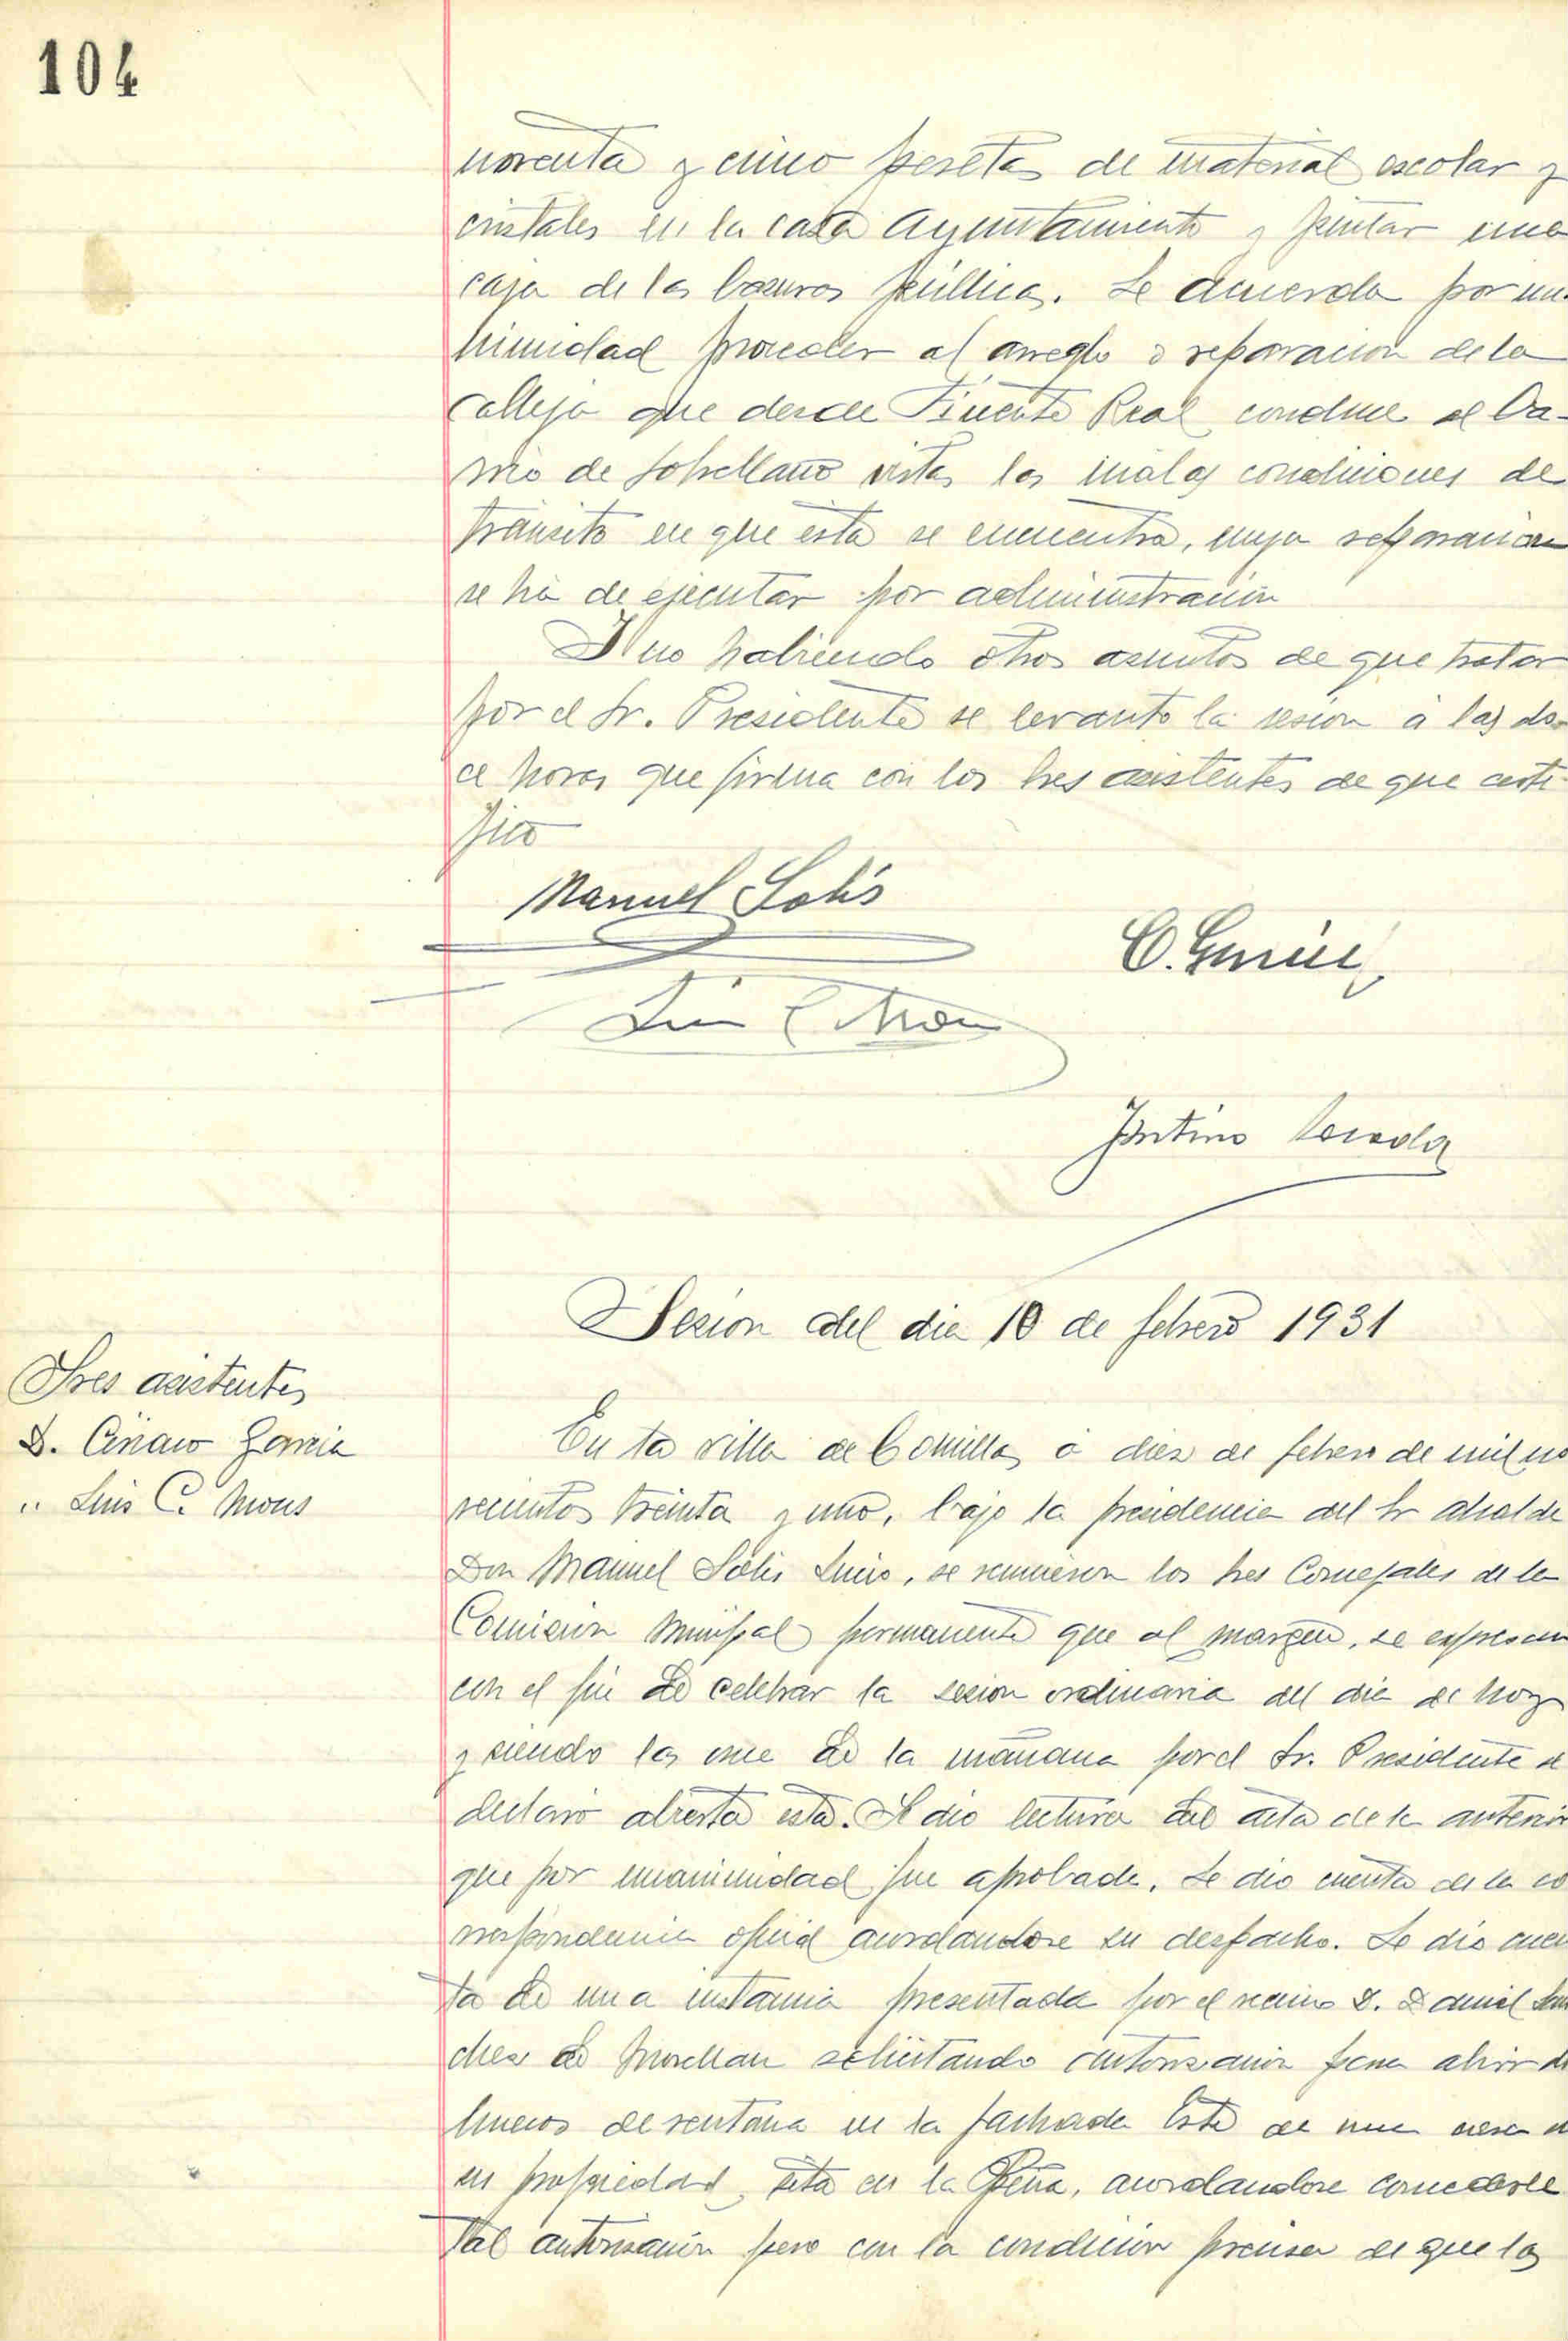 104
noventa y cinco pesetas de material escolar y
cristales en la casa Ayuntamiento y pintar una
caja de las basuras pública. Se acuerda por una
nimidad proceder al arreglo o reparacion de la
calleja que desde Fuente Real conduce al Ba-
rrio de Sobrellano vistas las malas condiciones de
tránsito en que esta se encuentra, cuya reparacion
se ha de ejecutar por administracion
Y no habiendo otros asuntos de que tratar
por el Sr. Presidente se levantó la sesion a las do-
ce horas que firma con los Sres asistentes de que certi-
fico
Manuel Solís
C. Garcia
Luis C. Mons
Sesion del dia 10 de febrero 1931
Sres asistentes
D. Ciriaco Garcia
" Luis C. Mons
En la villa de Comillas a diez de febrero de mil no
vecientos treinta y uno, bajo la presidencia del Sr alcalde
Don Manuel Solis, se reunieron los Sres Concejales de la
Comision Municipal permanente que al margen, se expresan
con el fin de celebrar la sesion ordinaria del dia de hoy
y siendo las once de la mañana por el Sr. Presidente se
declaro abierta esta. Se dio lectura del acta de la anterior
que por unanimidad fue aprobada. Se dio cuenta de la co
rrespondencia oficial acordandose su despacho. Se dio cuen
ta de una instancia presentada por el vecino D. Daniel San
chez de Movellan solicitando autorizacion para abrir dos
huecos de ventana en la fachada Este de una casa de
su propiedad, sita en la Peña, acordandose concederle
tal autorizacion pero con la condicion precisa de que las